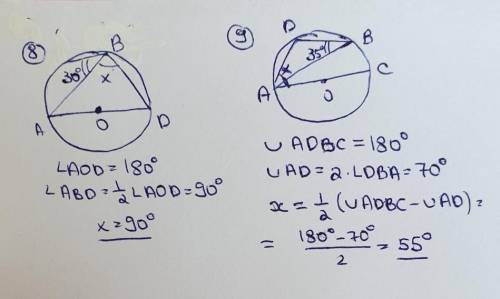 8
B
30°
x
A
O
D
∠AOD = 180°
∠ABD = 1/2 ∠AOD = 90°
x = 90°
9
D
B
35°
x
C
A
O
∪ ADBC = 180°
∪AD = 2·∠DBA = 70°
x = 1/2 (∪ADBC - ∪AD) =
= 180° - 70° / 2 = 55°